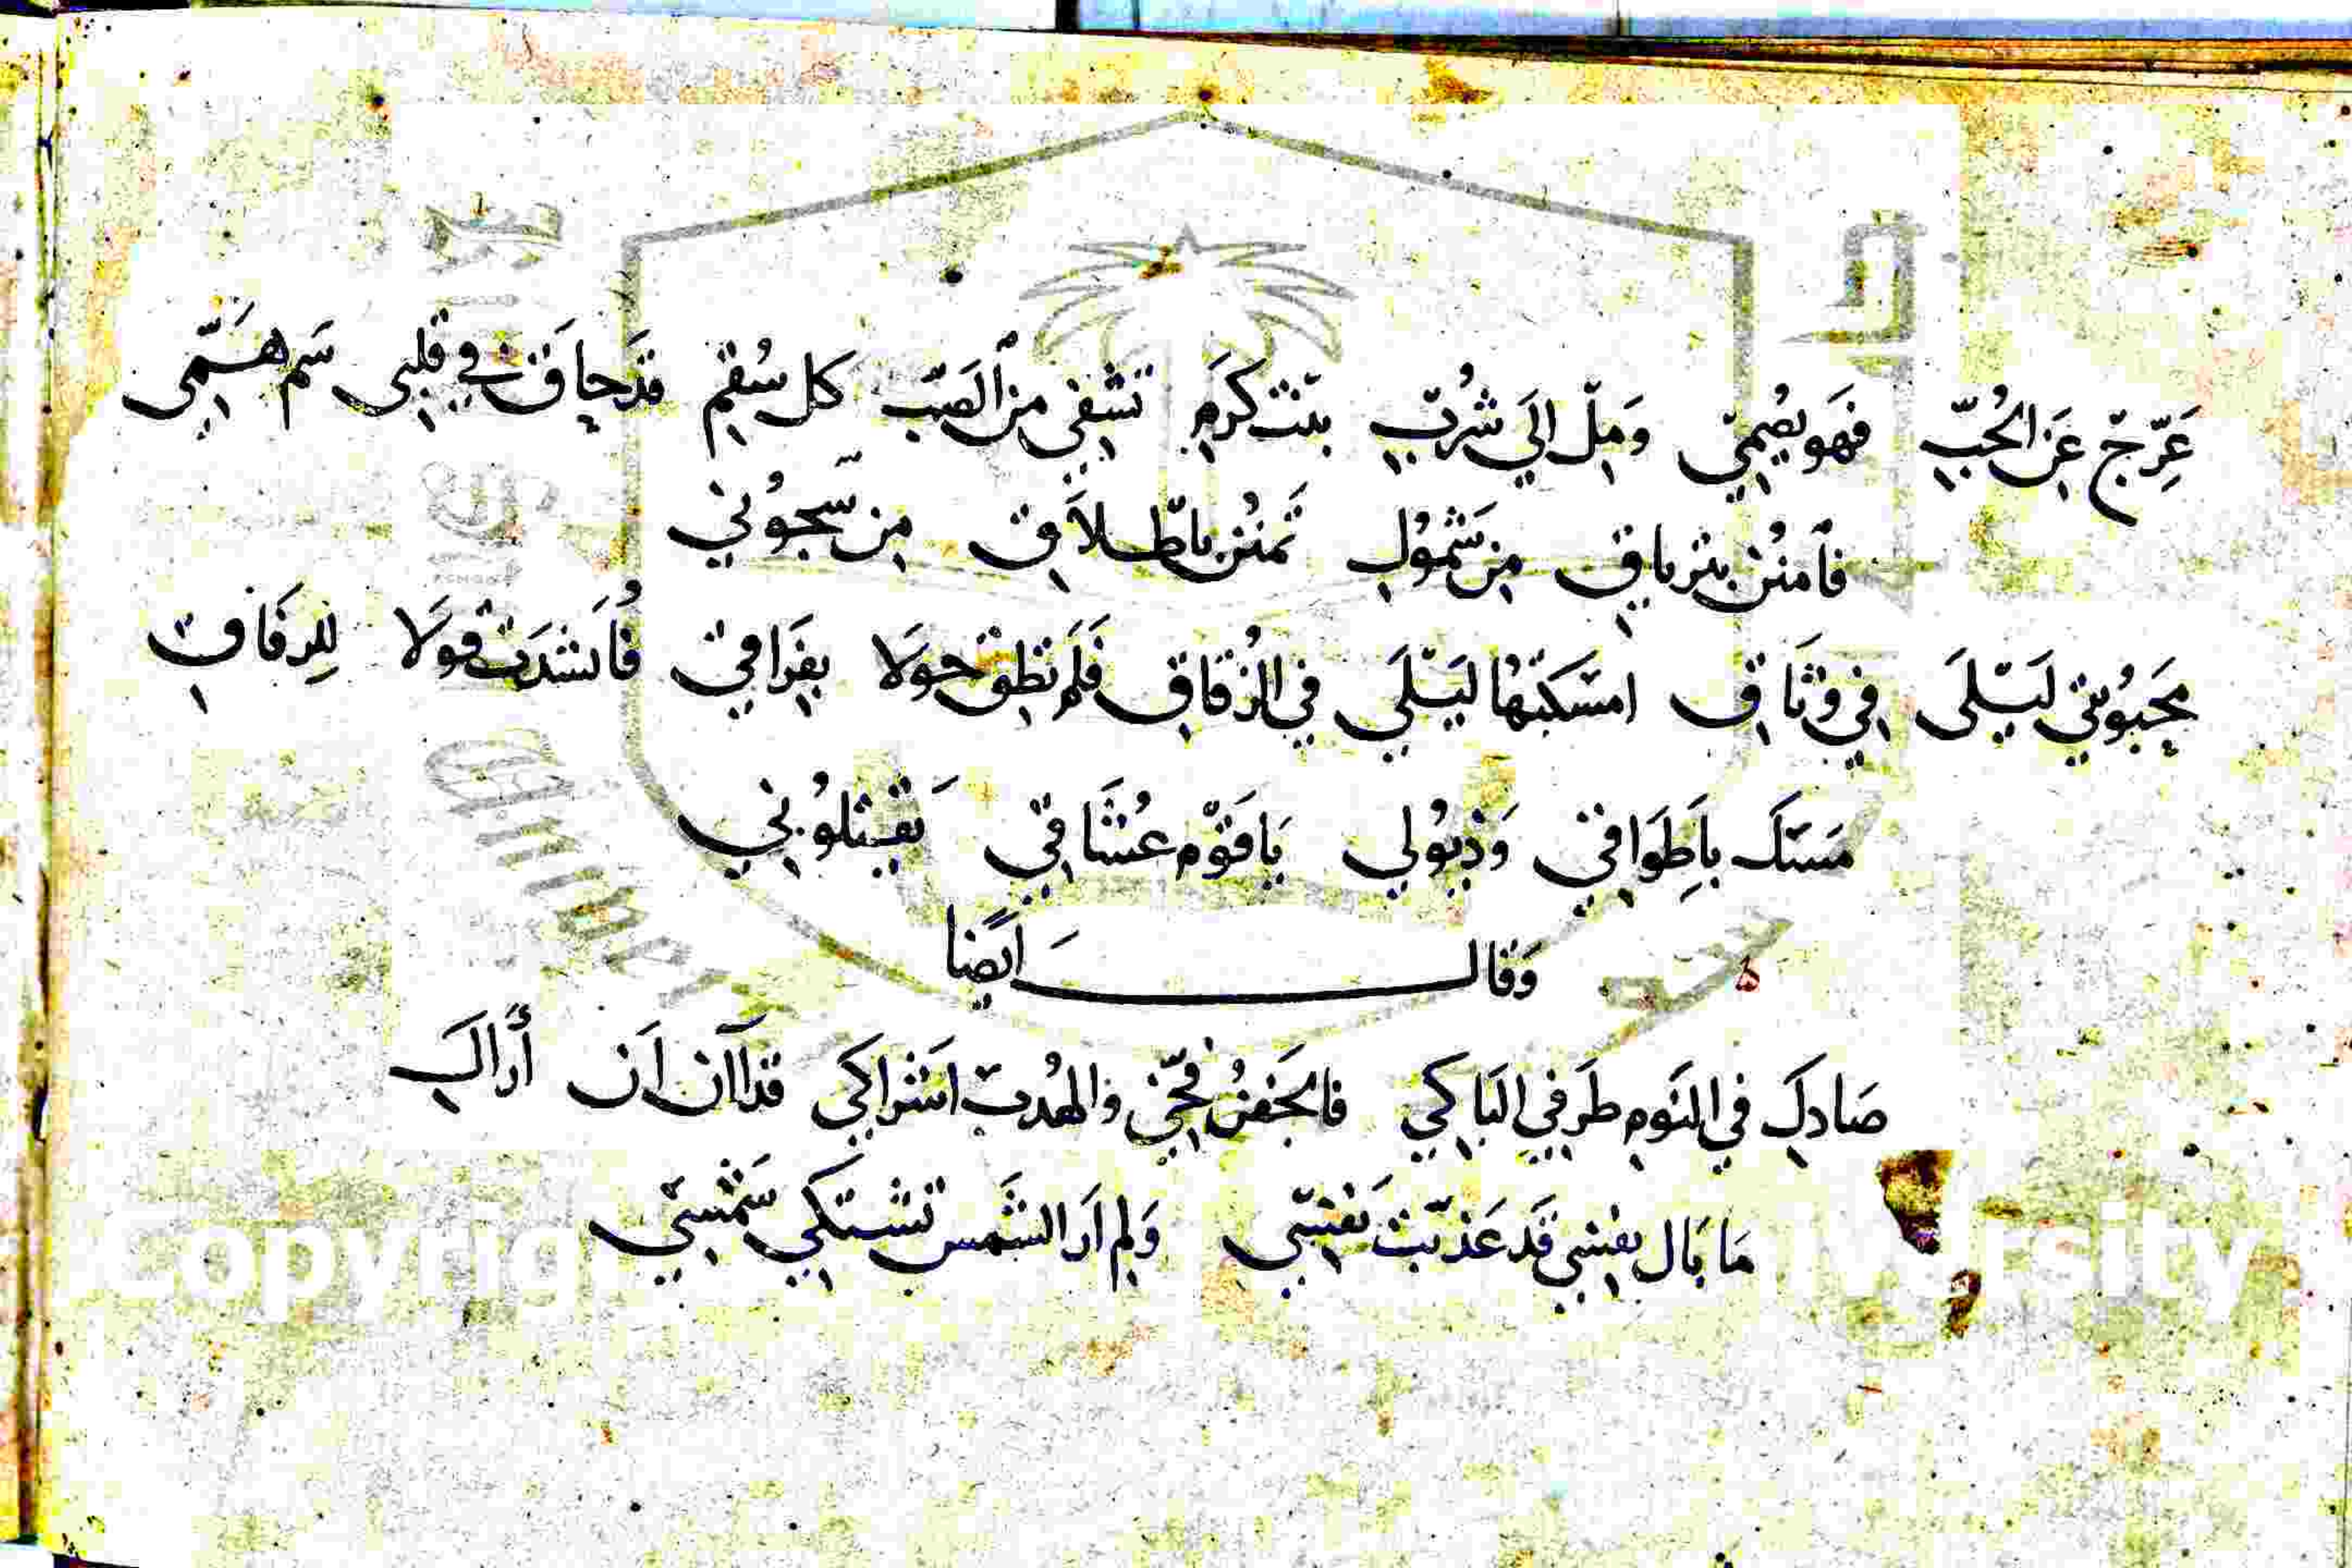 عَرِّجْ عَنِ الحُبِّ فهَو يُصْمِي وَمِلْ اِلَي شُرْبِ بنْت كرَمِ تشْفِي مِنَ الصَبِّ كل سُقمِ قدَ حاقَ في قلبِي سَم هَمِّي
فَامنُنْ بتريَاقِ مِن شَمُولِ تَمنُن باطلاَقِ مِن سُّجُونِي
محَبُوبتي لَيْلَى في وِثَاقِ امسَكتهَا لَيْلَي في الزُقاقِ فَلَم تطِق حوَلا بِفَرَاقي فَاَنشدَت قولاَ لِلرِفَاقِ
مَسَك باَطِوَاقي وَذيُولي يَا قَوْم عُشَّاقي تَقْتلوُني
وَقالَ اَيضًا
صَادكِ في النَومِ طَرفِي البَاكي فالجَفنُ فخّي والهُدبُ اشرَاكِي قد اۤن اَن أراكِ
مَا بَال نفسِي قَد عَذبَت نَفسِي وَلم اَر الشَمس تَشتَكي شَمْسِي
Copyright University